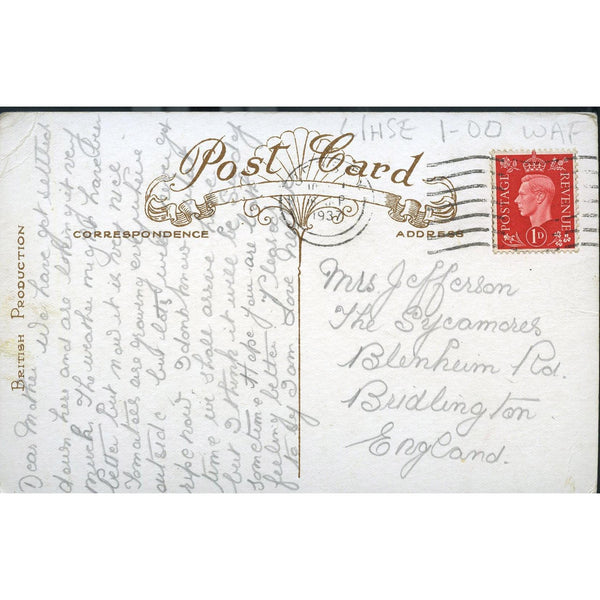 HSE 1-00 WAF
Post Card
CORRESPONDENCE
ADDRESS
BRITISH PRODUCTION
1937
POSTAGE
REVENUE
1D
Dear Mother We have got settled
down here and are liking it very
much. The weather might have been
better but now it is very nice
Tomatoes are growing everywhere
outside but lots will
ripe now. I don't know what
time we shall arrive
but I think it will be
sometime. Hope you are
feeling better.
I am Love
Mrs Jefferson
The Sycamores
Blenheim Rd.
Bridlington
England.